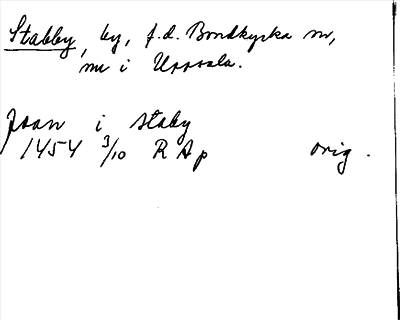 Stabby, by, f.d. Bondkyrka sn,
nu i Uppsala.
Joan i staby
1454 3/10 RAp orig.